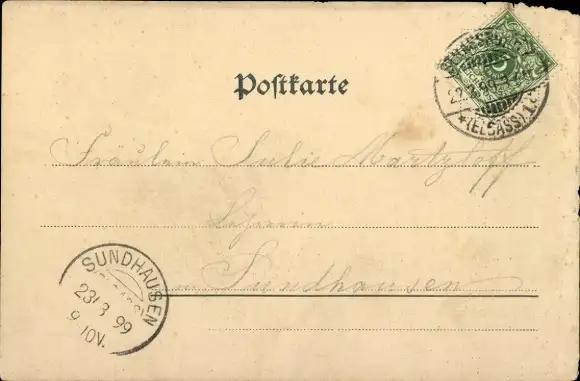 Postkarte
(ELSASS) 1.
Fräulein Julie Martzloff
in Sundhausen
SUNDHAUSEN
23 3 99
9 10V.